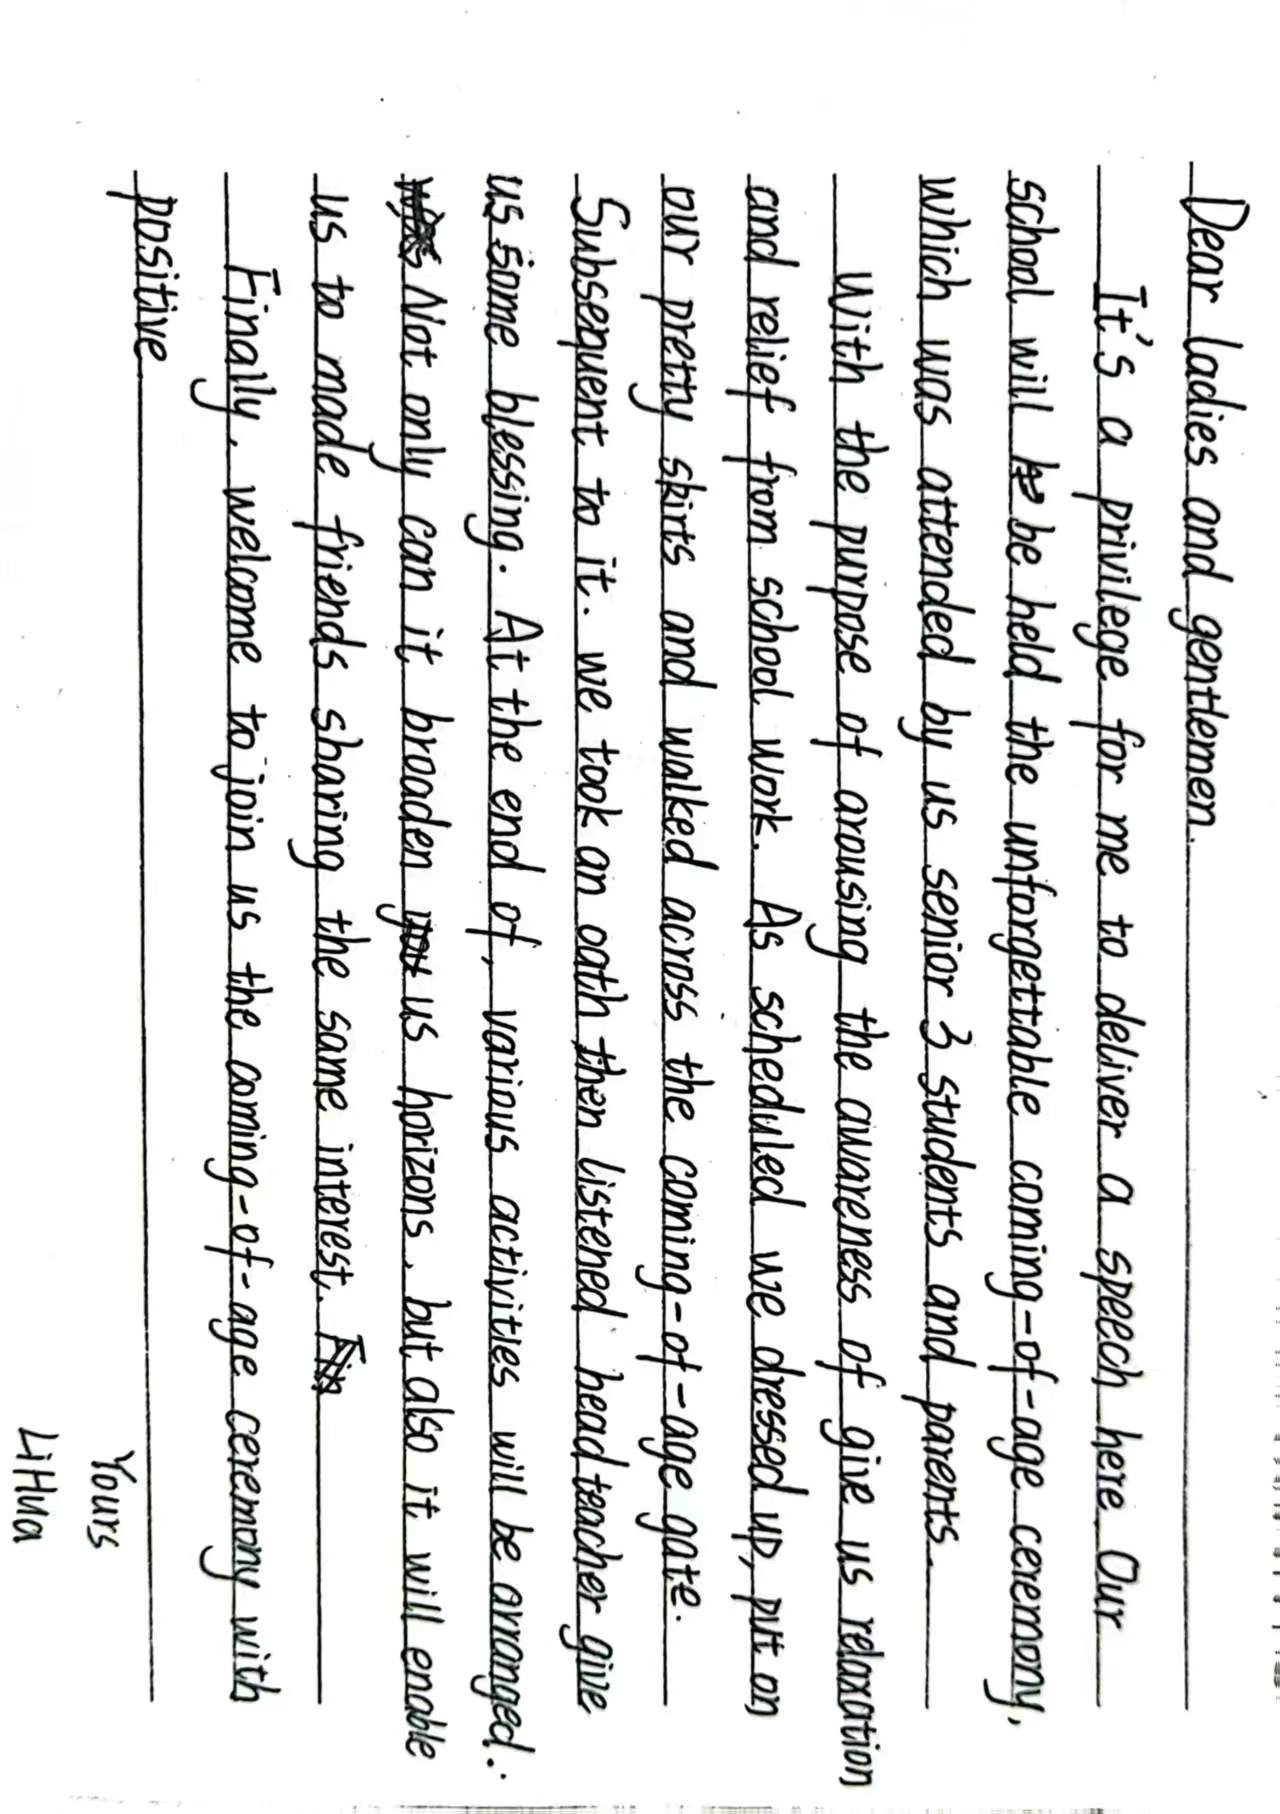 Dear ladies and gentlemen.
It's a privilege for me to deliver a speech here Our
school will be held the unforgettable coming-of-age ceremony,
which was attended by us senior 3 students and parents.
With the purpose of arousing the awareness of give us relaxation
and relief from school work. As scheduled we dressed up, put on
our pretty skirts and walked across the coming-of-age gate.
Subsequent to it. we took an oath then listened head teacher give
us some blessing. At the end of, various activities will be arranged.
Not only can it broaden us horizons, but also it will enable
us to made friends sharing the same interest.
Finally. welcome to join us the coming-of-age ceremony with
positive
Yours
LiHua